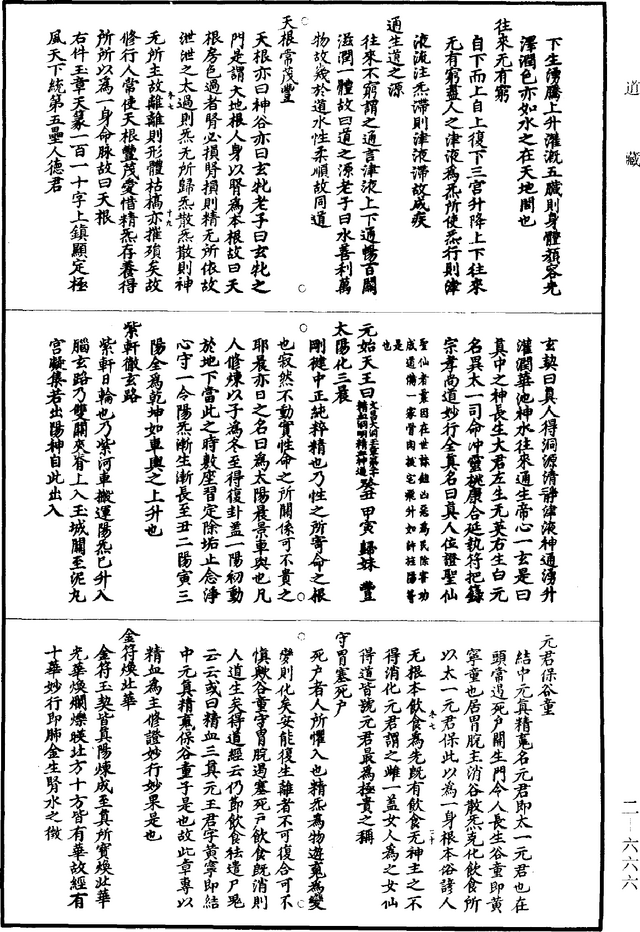 道藏
下生湧騰上升灌溉五臟則身體顏容光
澤潤色亦如水之在天地間也
往來元有窮
自下而上自上復下三宮升降上下往來
无有窮盡人之津液為炁所使炁行則津
液流注炁滯則津液滯故成疾
通生道之源
往來不窮謂之通言津液上下通暢百關
滋潤一體故曰道之源老子曰水善利萬
物故幾於道水性柔順故同道
天根常茂豐
天根亦曰神谷亦曰玄牝老子曰玄牝之
門是謂天地根人身以腎為本根故曰天
根房色過者腎必損腎損則精无所依故
泄泄之太過則炁无所歸炁散炁散則神
卷七 十九
无所主故離離則形體枯槁亦摧殞矣故
修行人當使天根豐茂愛惜精炁存養得
所所以為一身命脉故曰天根
右件玉章天篆一百一十字上鎮顯定極
風天下統第五壘人德君
玄契曰真人得洞源清靜津液神通湧升
灌潤華池神水往來通生帝心一玄是曰
真中之神長生大君左生无英右生白元
名異太一司命冲靈桃康合延執符把籙
宗孝尚道妙行全真名曰真人位證聖仙
聖仙者重因在世誅䤋凶惡為民除害功
成道備一家骨肉拔宅飛升如許旌陽等
是也
元始天王曰
癸丑 甲寅 歸妹 豐
太陽化三晨
剛健中正純粹精也乃性之所寄命之根
也寂然不動實性命之所關係可不貴之
耶晨亦日之名曰為太陽晨景車輿也凡
人修煉以子為冬至得復卦蓋一陽初動
於地下當此之時敷座習定除垢止念淨
心守一令陽炁漸生漸長至丑二陽寅三
陽全為乾坤如車輿之上升也
紫軒徹玄路
紫軒日輪也乃紫河車搬運陽炁已升入
腦玄路乃雙關夾脊上入玉城關至泥丸
宮凝集若出陽神自此出入
元君保谷童
結中元真精寃名元君即太一元君也在
頭常遏死户開生門令人長生谷童即黄
寧童也居胃脘主消谷散炁克化飲食所
以太一元君保此以為一身根本俗諺人
卷七 二十
无根本飲食為先既有飲食无神主之不
得消化元君謂之雌一蓋女人為之女仙
得道皆號元君最為極貴之稱
守胃塞死户
死户者人所懼入也精炁為物遊寃為變
變則化矣安能復生離者不可復合可不
慎歟谷童守胃脘遏塞死户飲食既消則
人道生矣得道經云仍節飲食袪遣尸鬼
云云或曰精血三真元王君字黄寧即結
中元真精寃保谷童子是也故此章專以
精血為主修證妙行妙果是也
金符煥北華
金符玉契皆真陽煉成至真所寶煥北華
光華煥爛爍映北方十方皆有華故經有
十華妙行即肺金生腎水之微
二—六六六